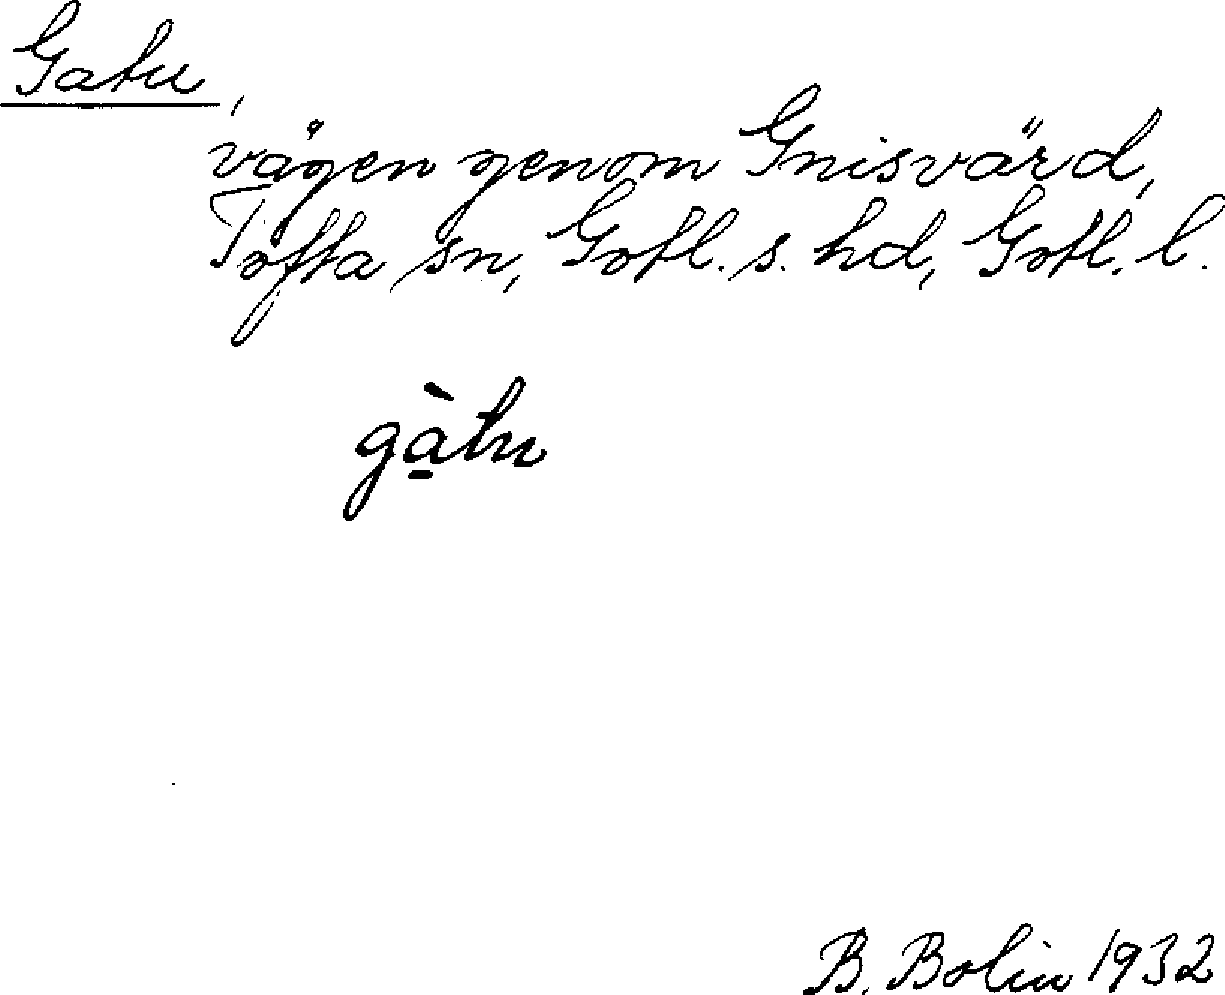 Gatu,
vägen genom Gnisvärd,
Tofta sn, Gotl. s. hd, Gotl. l.
gà̱tu
B. Bolin 1932